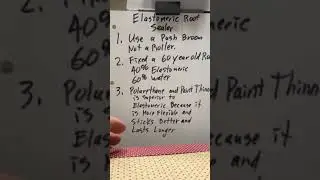 Elastomeric Roof
Sealer
1. Use a Push Broom
Not a Roller.
2. Fixed a 60 year old Ro
40% Elastomeric
60% water
3. Polyurethane and Paint Thinn
is Superior to
Elastomeric Because it
is More Flexible and
Sticks Better and
Lasts Longer